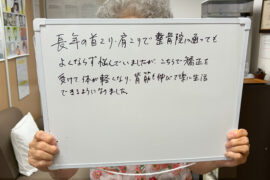 長年の首こり・肩こりで整骨院に通っても
よくならず悩んでいましたが、こちらで矯正を
受けて体が軽くなり、背筋も伸びて楽に生活
できるようになりました。